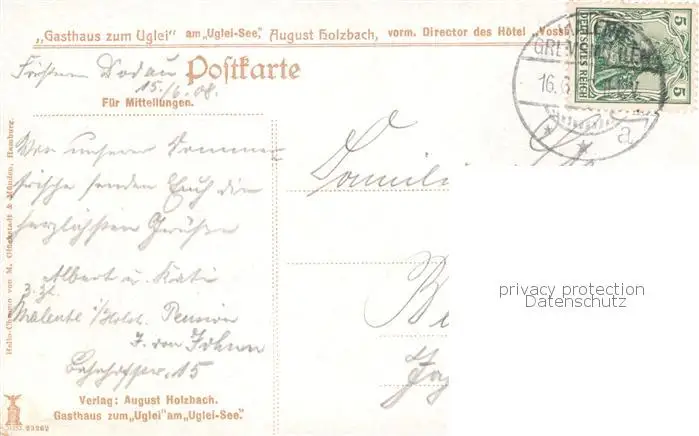 „Gasthaus zum Uglei" am „Uglei-See," August Holzbach, vorm. Director des Hôtel „Voss
Postkarte
15./6. 08.
Für Mitteilungen.
MALENTE-
GREMSMÜHLEN
16.6.
a
DEUTSCHES REICH
5
5
Von unserer Sommer-
frische senden Euch die
herzlichsten Grüße
Albert u. Kati
z. Zt.
Malente i/Holst. Pension
J. von
Bahnhofstr. 15
Verlag: August Holzbach.
Gasthaus zum „Uglei" am „Uglei-See."
Hello-Chromo von M. Glückstadt & Münden, Hamburg.
23262
Familie
privacy protection
Datenschutz